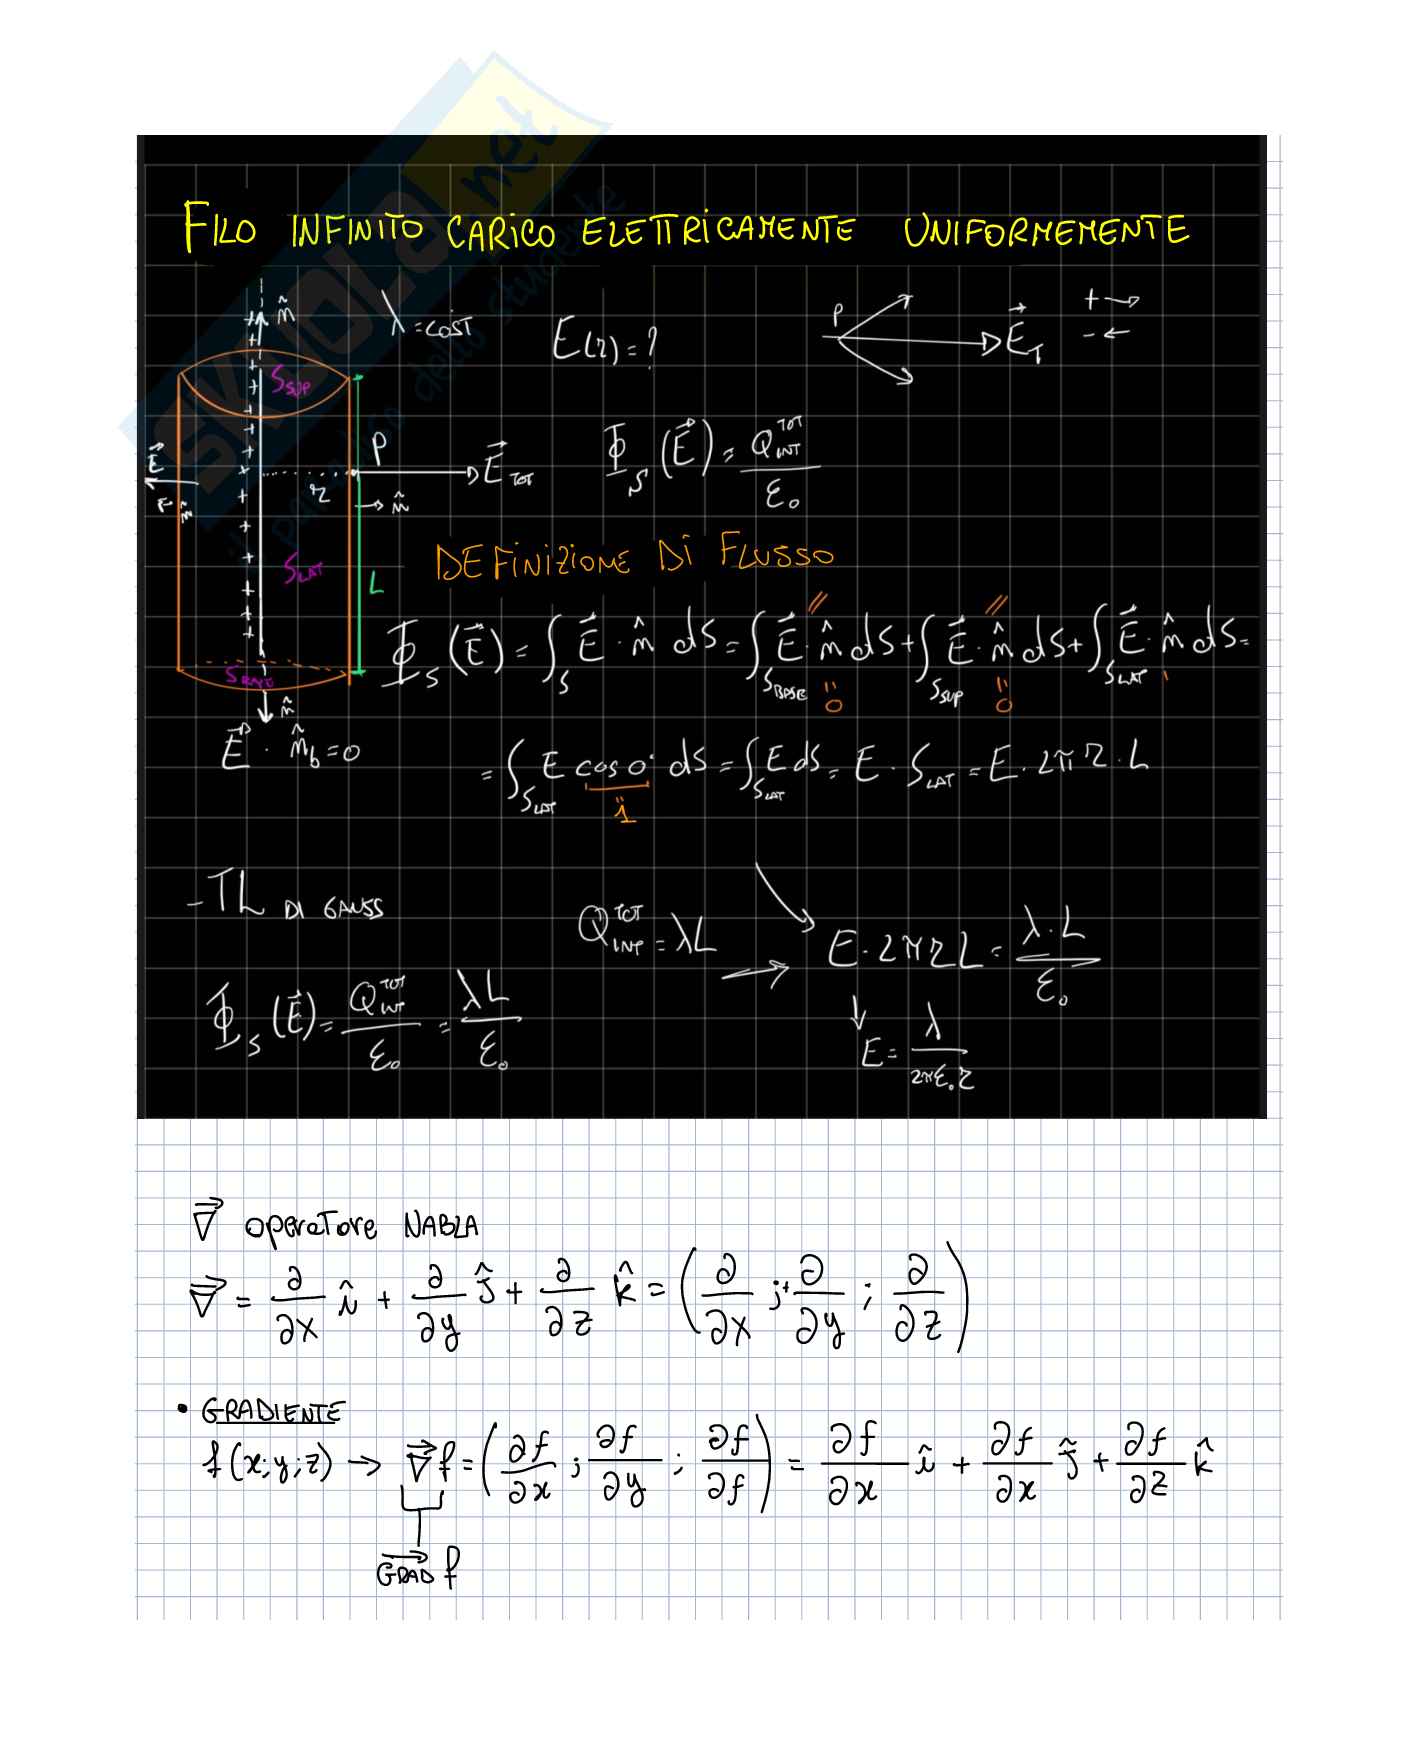 SKUOLA.net
FILO INFINITO CARICO ELETTRICAMENTE UNIFORMEMENTE
n̂
λ = COST
E(r) = ?
P
E⃗_T
+ →
- ←
S_SUP
E⃗
n̂
P
r
E⃗_TOT
→ n̂
Φ_S (E⃗) = Q_INT^TOT / ε₀
DEFINIZIONE DI FLUSSO
S_LAT
L
Φ_S (E⃗) = ∫_S E⃗ · n̂ dS = ∫_S_BASE E⃗ · n̂ dS + ∫_S_SUP E⃗ · n̂ dS + ∫_S_LAT E⃗ · n̂ dS =
" 0
" 0
S_BASE
n̂
E⃗ · n̂_b = 0
= ∫_S_LAT E cos 0° dS = ∫_S_LAT E dS = E · S_LAT = E · 2π r · L
" 1
- TL DI GAUSS
Q_INT^TOT = λL
→ E · 2π r L = λ · L / ε₀
Φ_S (E⃗) = Q_INT^TOT / ε₀ = λL / ε₀
↓ E = λ / 2πε₀r
∇⃗ operatore NABLA
∇⃗ = ∂/∂x î + ∂/∂y ĵ + ∂/∂z k̂ = (∂/∂x ;+ ∂/∂y ; ∂/∂z)
• GRADIENTE
f(x;y;z) → ∇⃗f = (∂f/∂x ; ∂f/∂y ; ∂f/∂f) = ∂f/∂x î + ∂f/∂x ĵ + ∂f/∂z k̂
GRAD f